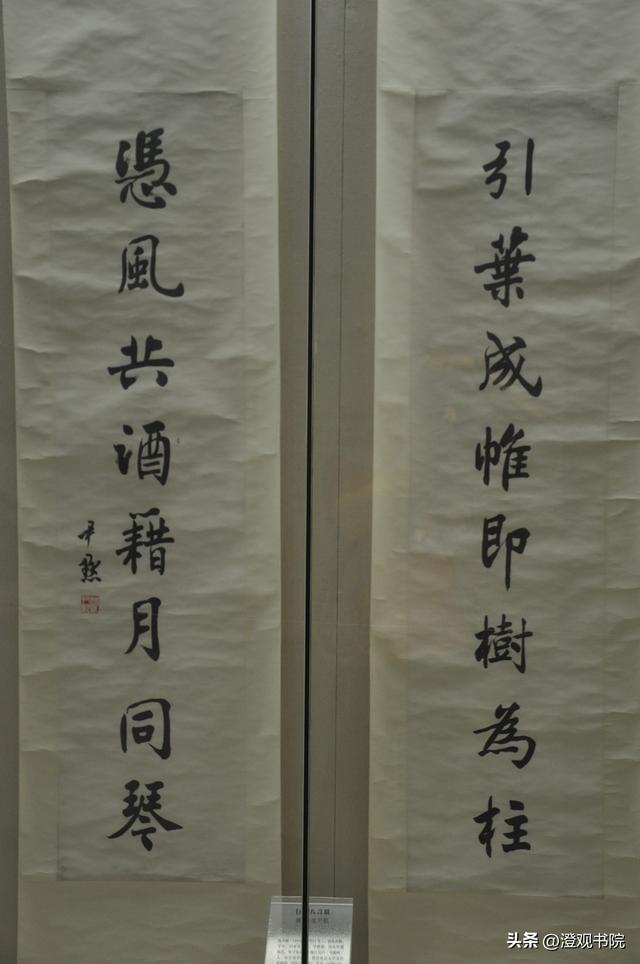 引葉成帷即樹為柱
憑風共酒籍月同琴
尹默
頭条 @澄观书院